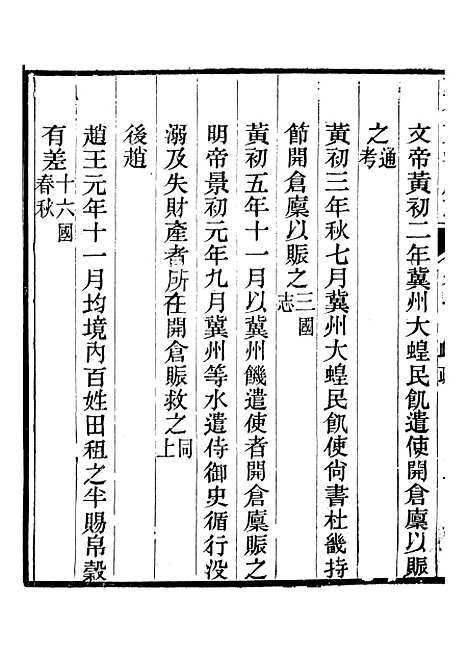 文帝黃初二年冀州大蝗民飢遣使開倉廩以賑
之通考
黃初三年秋七月冀州大蝗民飢使尚書杜畿持
節開倉廩以賑之三國志
黃初五年十一月以冀州饑遣使者開倉廩賑之
明帝景初元年九月冀州等水遣侍御史循行没
溺及失財產者所在開倉賑救之同上
後趙
趙王元年十一月均境內百姓田租之半賜帛穀
有差十六國春秋